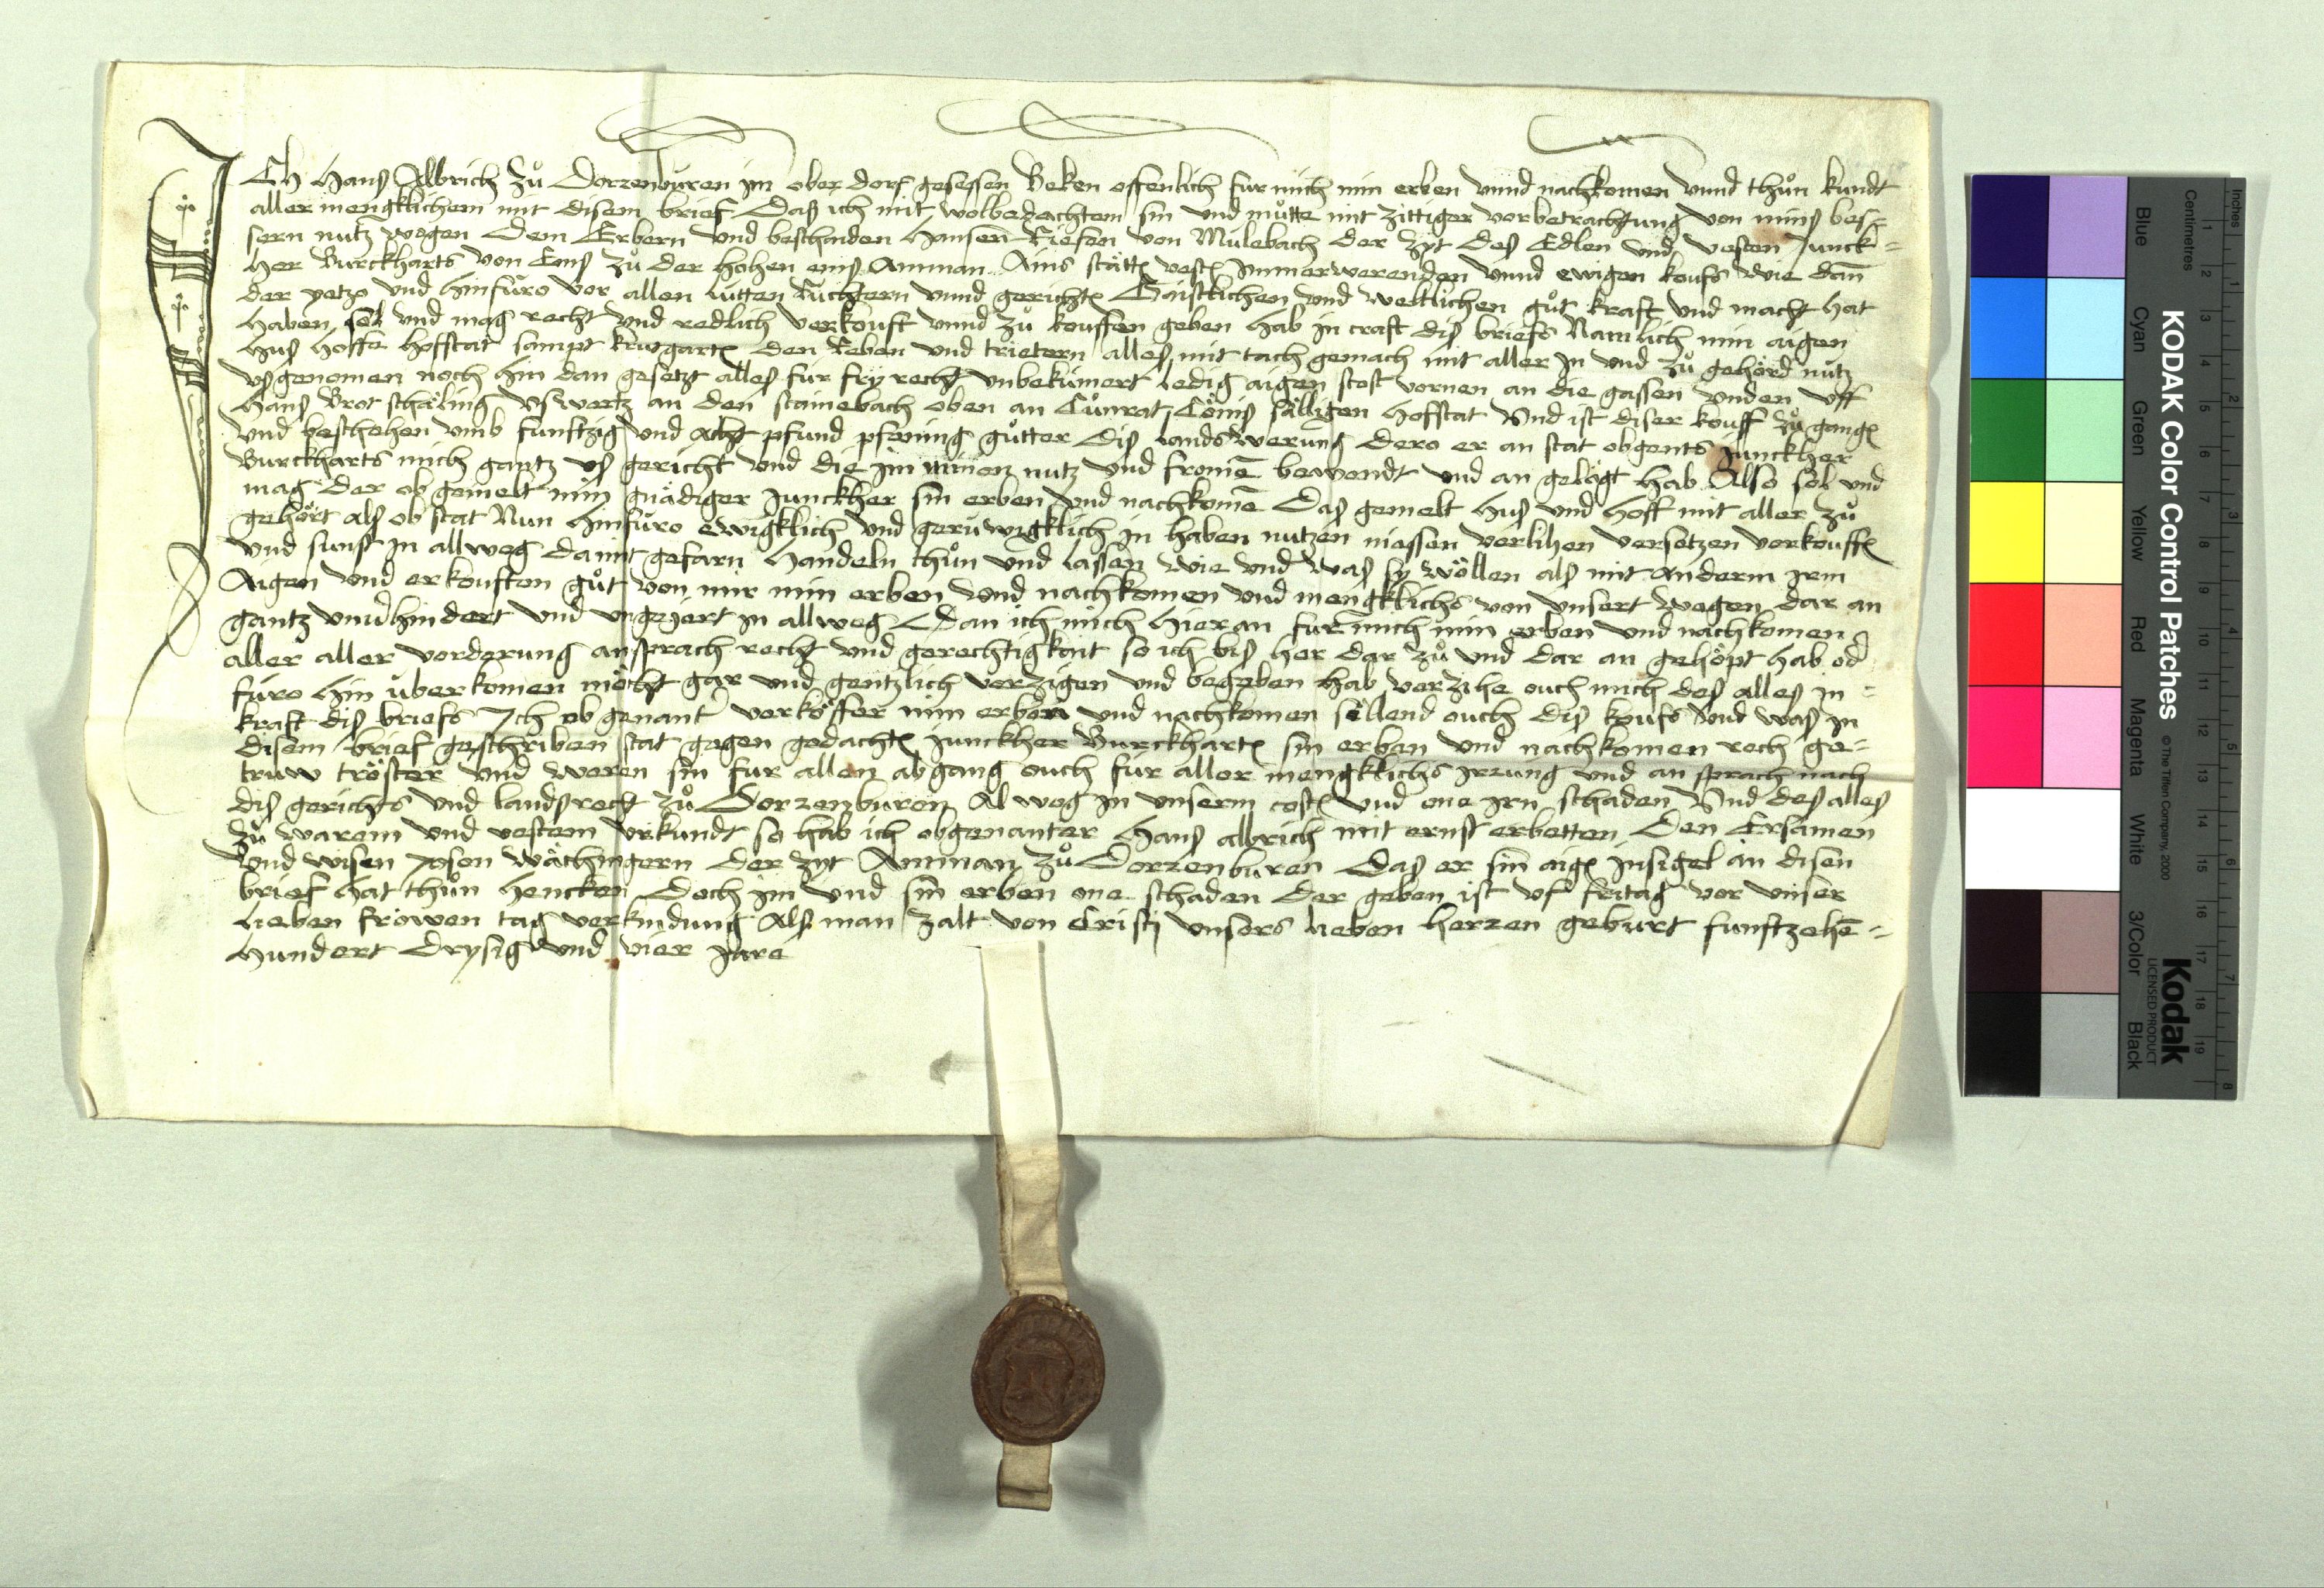 ICh Hans Albrich zů Dorrenbüren im ober dorf gesessen Beken offenlich für mich min erben vnnd nachkomen vnnd thůn kundt
aller mengklichem mit disem brief Das ich mit wolbedachtem sin vnd můtte mit zittiger vorbetrachtung von mins bes-
sern nutz wegen Dem Erbern vnd beschaiden Hansen Riefen von Mülebach der zyt des Edlen vnd vesten Junck-
her Burckharts von Ems zů der hohen ems Amman Ains stätten vesten Immerwerenden vnnd ewigen koufs wie dan
der yetzo vnd hinfüro vor allen lütten Richtern vnnd gerichten Gaistlichen vnd weltlichen gůt kraft vnd macht hat
haben sol vnd mag recht vnd redlich verkouft vnnd zů kouffen geben hab in craft dis briefs Namlich min aigen
hus hoffe hofstat sampt krutgarten den reben vnd trietern alles mit tach gemach mit aller In vnd zů gehörd nütz
vsgenomen noch hin dan gesetzt alles für fry recht vnbekümert ledig aigen stost vornen an die gassen vnden vff
Hans Brotschäling vswertz an den stainebach oben an Cůnrat Cönis sälligen hofstat Vnd ist diser kouff zů gangen
vnd beschehen vmb funftzig vnd acht pfund pfening gůtter dis lands werung dero er an stat obgents Junckher
Burckharts mich gantz vs gericht vnd die im minen nutz vnd fromen bewendt vnd an gelägt hab Also sol vnd
mag der ob gemelt min gnädiger Junckher sin erben vnd nachkomen Das gemelt hus vnd hoff mit aller zů
gehört als ob stat Nun hinfüro ewigklich vnd gerüwigklich in haben nutzen niessen verlihen versetzen verkouffen
vnd sunst in allweg damit gefarn handeln thůn vnd lassen wie vnd was sy wöllen als mit anderm irem
Aigen vnd erkouften gůt von mir min erben vnd nachkomen vnd mengklichs von vnsert wegen dar an
gantz vnuerhindert vnd vngeiert in allweg Dan ich mich hieran für mich min erben vnd nachkomen
aller aller vorderung ansprach recht vnd gerechtigkait so ich bis her dar zů vnd dar an gehöpt hab oder
füro hin überkomen möcht gar vnd gentzlich verzigen vnd begeben hab verzihe ouch mich des alles in
kraft dis briefs Ich ob genant verköffer min erben vnd nachkomen söllend ouch dis koufs vnd was in
disem brief geschriben stat gegen gedachten Junckher Burckharten sin erben vnd nachkomen rech ge-
truw tröster vnd weren sin für allen abgang ouch für aller mengklichs irrung vnd an sprach nach
dis gerichts vnd landsrecht zů Dorrenbüren Al weg in vnserm costen vnd one irn schaden Vnd des alles
zů warem vnd vestem vrkundt so hab ich obgenanter Hans albrich mit ernst erbetten Den Ersamen
vnd wisen Jhsen wächingern der zyt Amman zů Dorrenbüren Das er sin aigen insigel an disen
brief hat thůn hencken Doch im vnd sin erben one schaden der geben ist vf fritag vor vnser
lieben fröwen tag verkindung Als man zalt von Cristj vnsers lieben herren geburt funftzehen-
hundert Drysig vnd vier Jare
KODAK Color Control Patches
© The Tiffen Company, 2000
Kodak
LICENSED PRODUCT
Blue Cyan Green Yellow Red Magenta White 3/Color Black
Centimetres 1 2 3 4 5 6 7 8 9 10 11 12 13 14 15 16 17 18 19
Inches 1 2 3 4 5 6 7 8